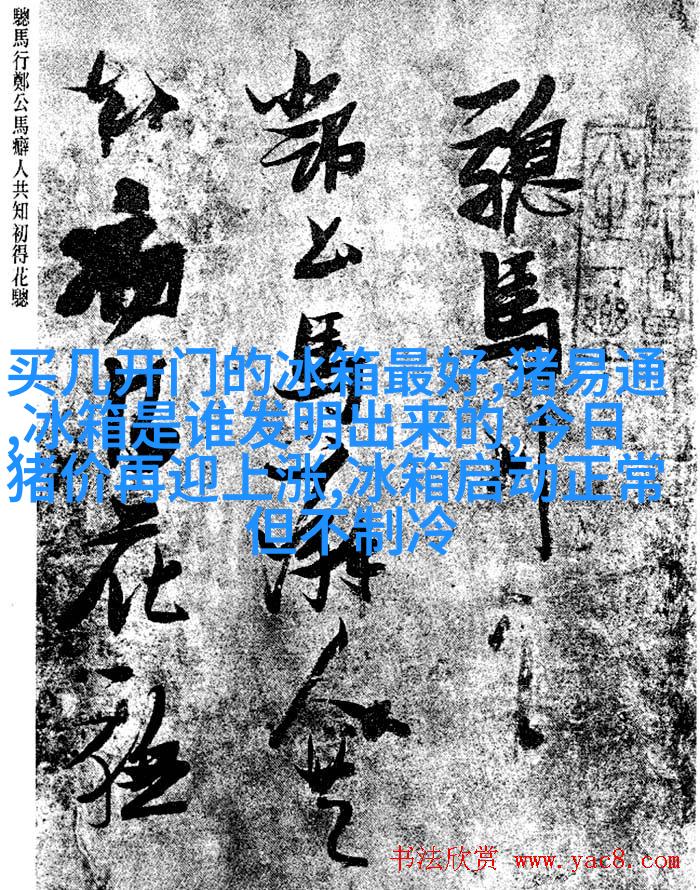 驄馬行鄭公馬癖人共知初得花驄
驄馬行
鄭公馬癖人共
知初得花驄
买几开门的冰箱最好,猪易通
,冰箱是谁发明出来的,今日
猪价再迎上涨,冰箱启动正常
但不制冷
书法欣赏 www.yac8.com